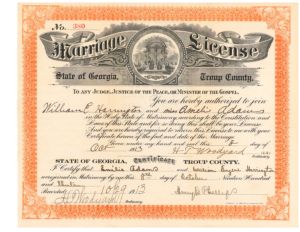 No. 380
Marriage License
State of Georgia, Troup County.
TO ANY JUDGE, JUSTICE OF THE PEACE, OR MINISTER OF THE GOSPEL.
You are hereby authorized to join
William E Harrington and Miss Adams
in the Holy State of Matrimony according to the Constitution and
Laws of this State and for so doing this shall be your License
And you are hereby required to return this License to me with your
Certificate hereon of the fact and date of the Marriage.
Given under my hand and seal this 8 day of
Oct 1913 H. T. Woodyard
STATE OF GEORGIA, CERTIFICATE TROUP COUNTY.
I Certify that Adams and William Harrington
were joined in Matrimony by me this 8th day of October Nineteen Hundred
and thirteen
10/29 1913 Henry Phillips
H T Woodyard